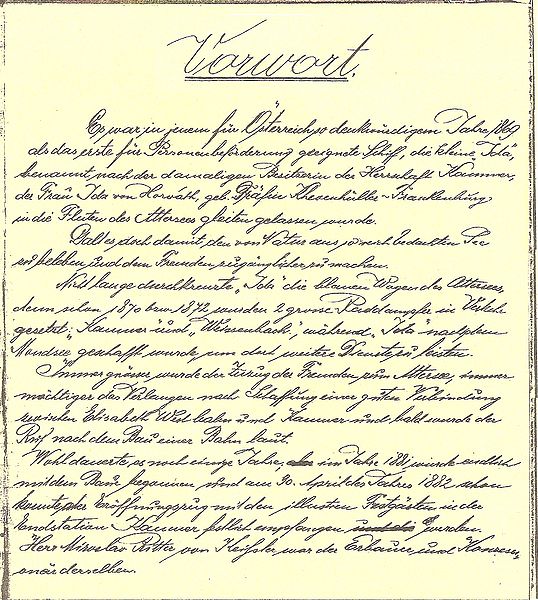 Vorwort.
Es war in jenem für Österreich so denkwürdigem Jahre, 1869
als das erste für Personenbeförderung geeignete Schiff, die kleine „Ida",
benannt nach der damaligen Besitzerin der Herrschaft Kammer,
der Frau Ida von Horváth, geb. Gräfin Khevenhüller-Frankenburg
in die Fluten des Attersees gleiten gelassen wurde.
Galt es doch damit, den von Natur aus so reich bedachten See
zu beleben und dem Fremden zugänglicher zu machen.
Nicht lange durchkreuzte „Ida" die blauen Wogen des Attersees,
denn schon 1870 bzw. 1872 wurden 2 grosse Raddampfer in Verkehr
gesetzt; „Kammer" und „Weissenbach", während „Ida" nach dem
Mondsee geschafft wurde, um dort weitere Dienste zu leisten.
Immer grösser wurde der Zuzug der Fremden zum Attersee, immer
mächtiger das Verlangen nach Schaffung einer guten Verbindung
zwischen Elisabeth Westbahn und Kammer und bald wurde der
Ruf nach dem Bau einer Bahn laut.
Wohl dauerte es noch einige Jahre, im Jahre 1881 wurde endlich
mit dem Bau begonnen und am 30. April des Jahres 1882 schon
konnte der Eröffnungszug mit den illustren Festgästen in der
Endstation Kammer festlich empfangen werden.
Herr Miroslav Ritter von Keissler war der Erbauer und Konzessi-
onär derselben.